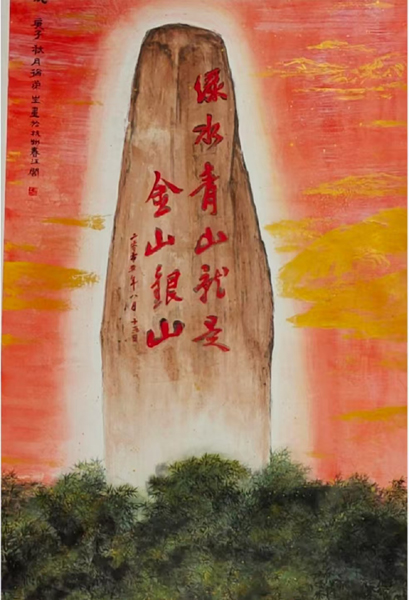 绿水青山就是
金山银山
二零零五年八月十五日
庚子秋月